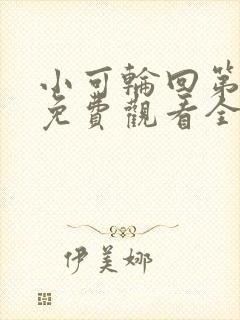 小可輪回第
免費觀看全
伊美娜